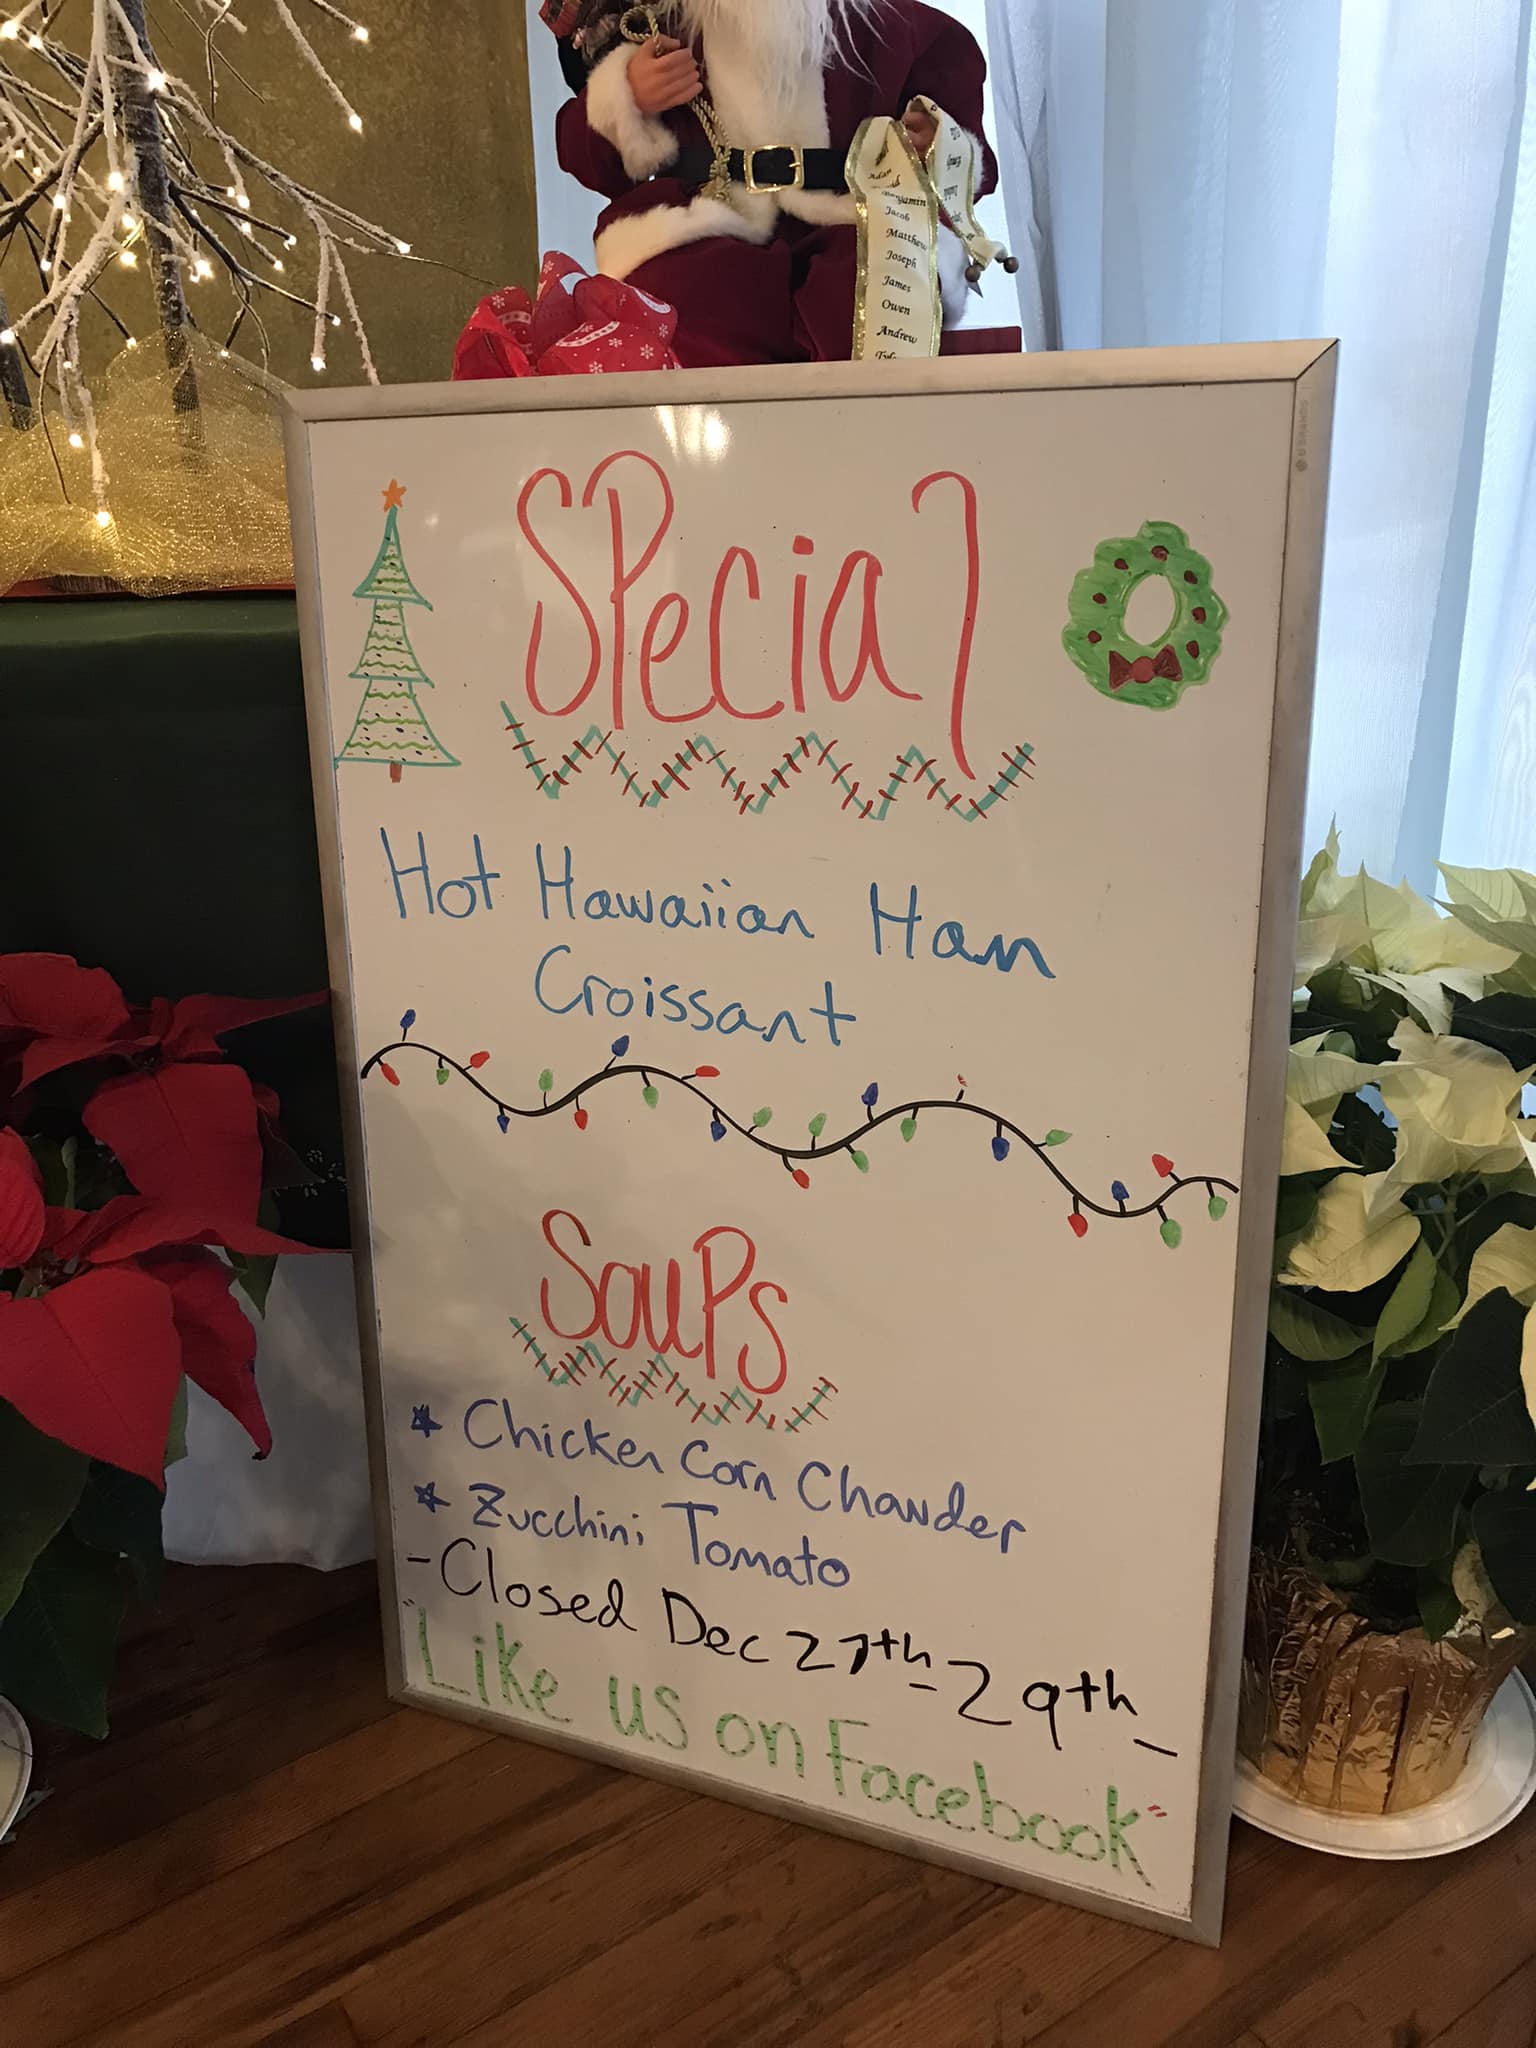 Adan
Benjamin
Jacob
Matthew
Joseph
James
Owen
Andrew
SPecial
Hot Hawaiian Ham
Croissant
SouPs
* Chicken Corn Chowder
* Zucchini Tomato
- Closed Dec 27th - 29th -
"Like us on Facebook"